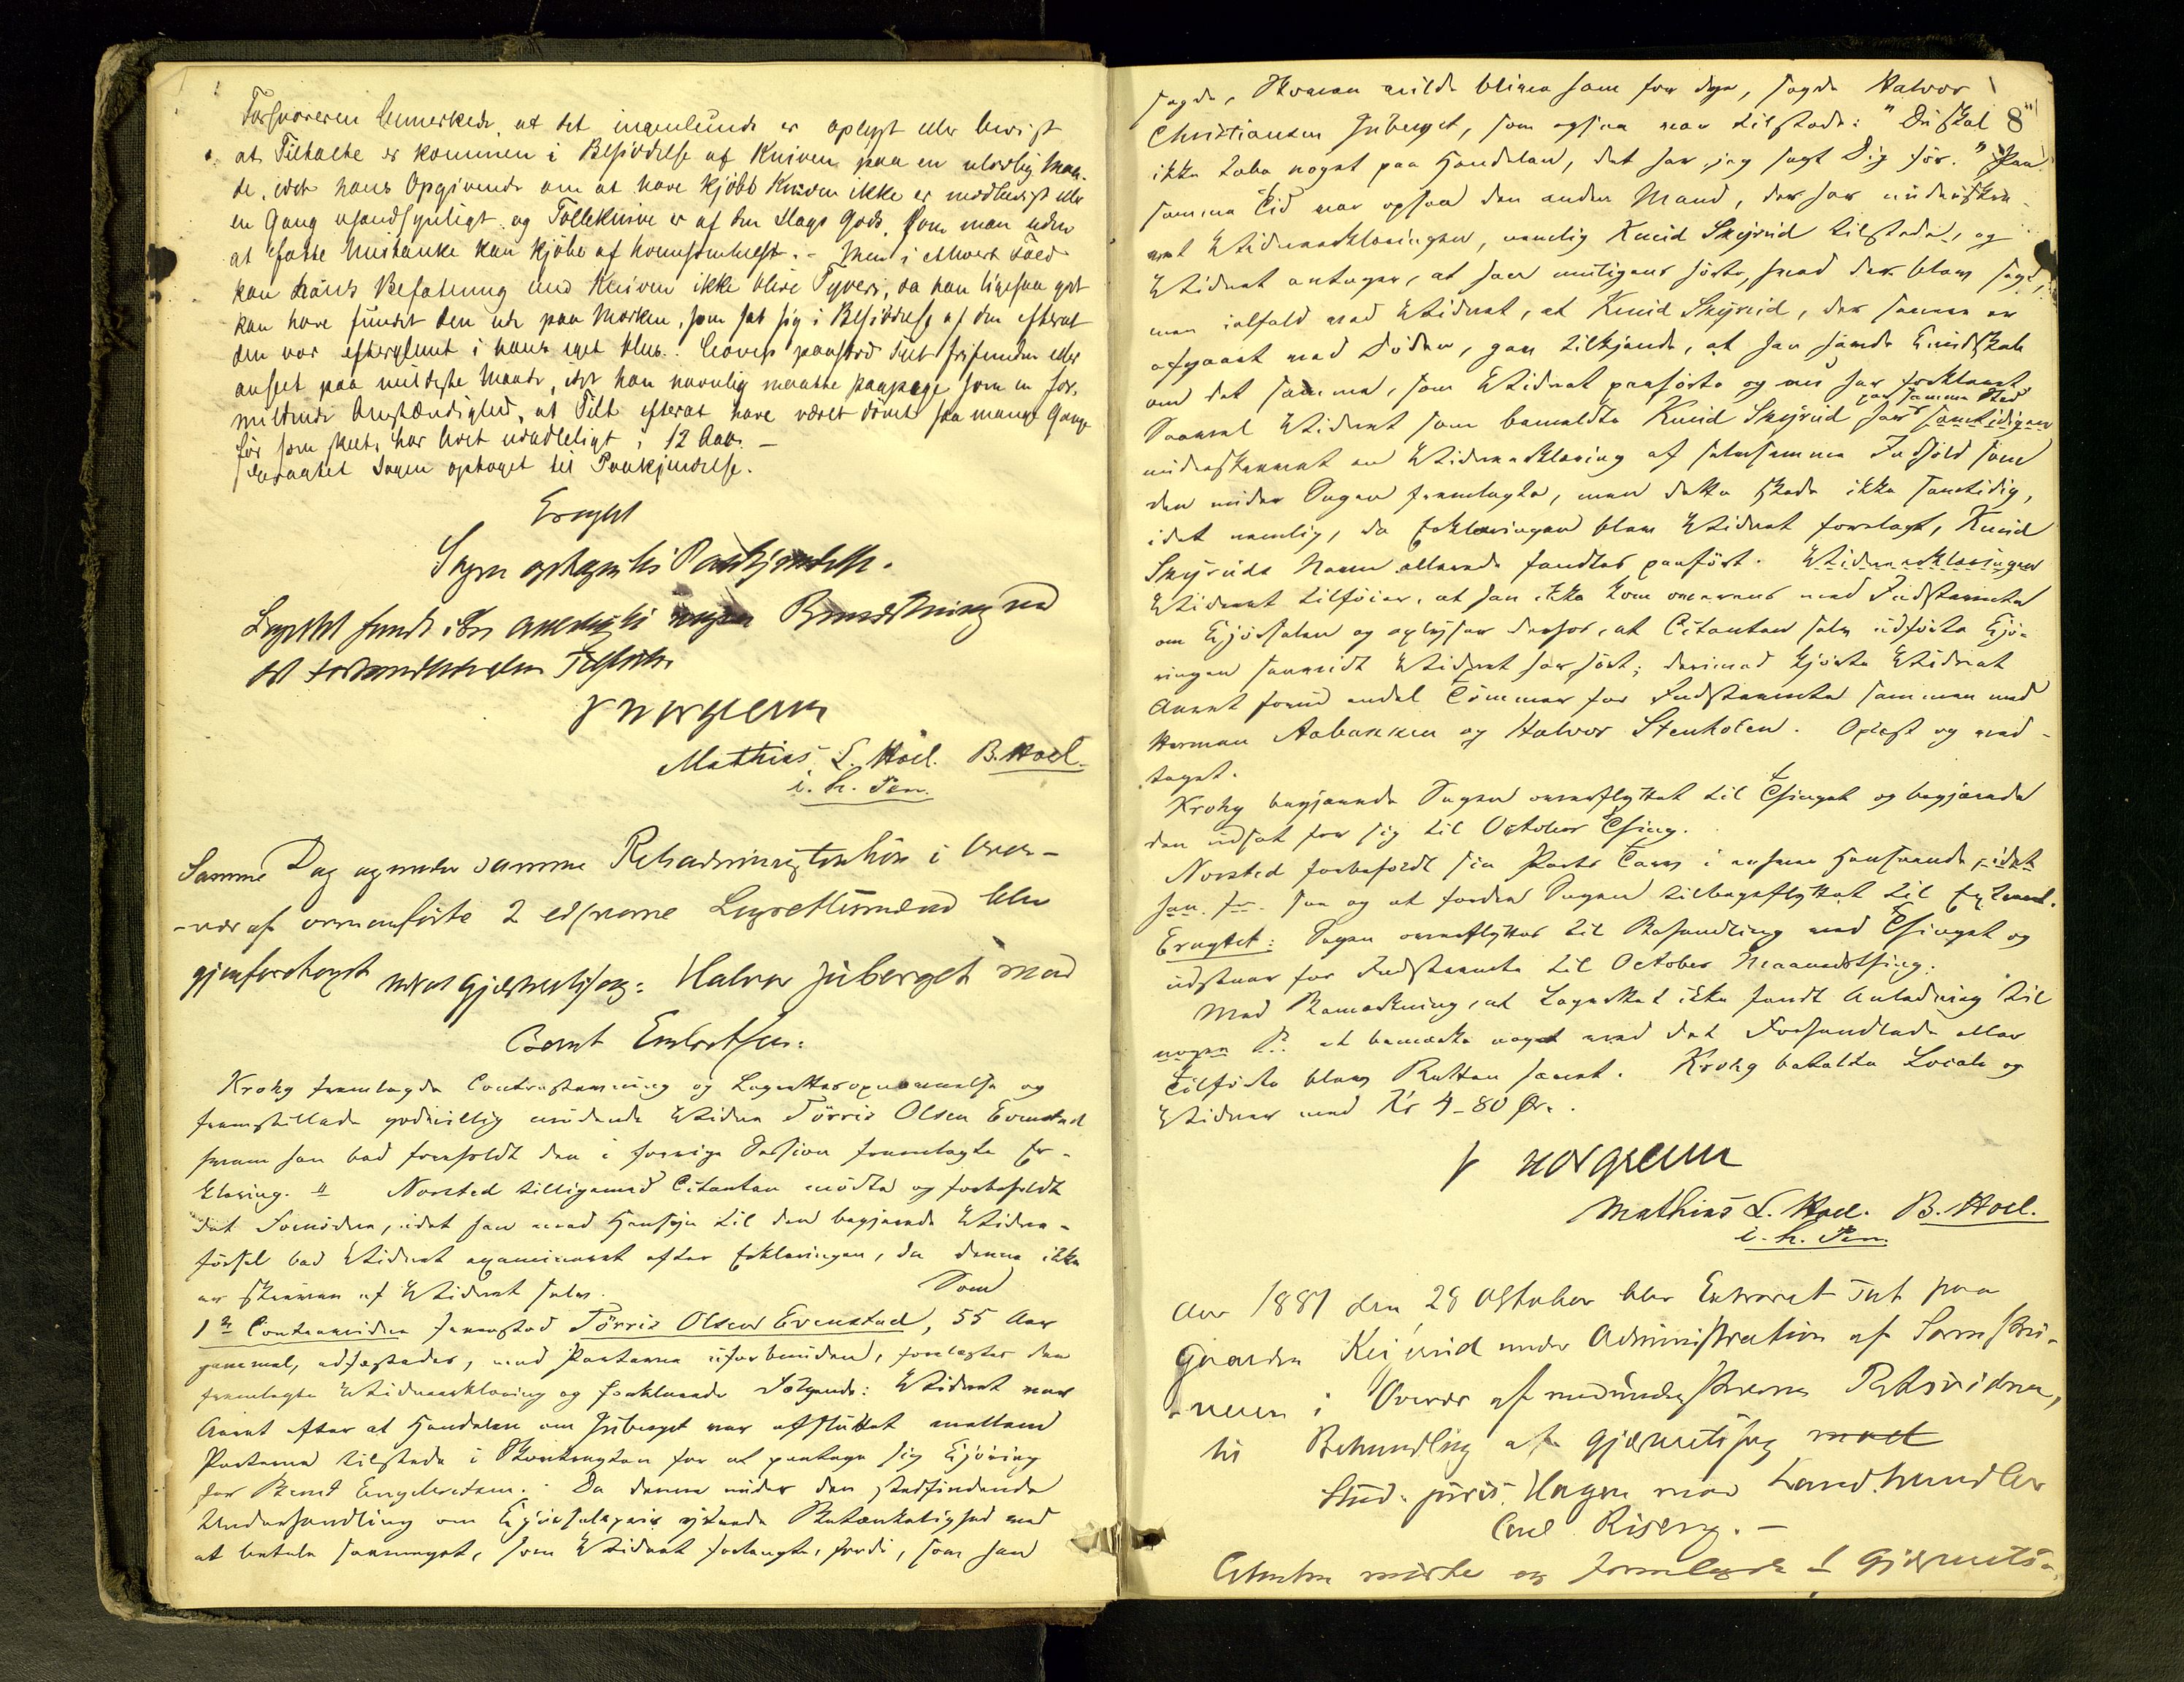 Forsvareren bemerkede, at det ingenlunde er oplyst eller bevist
at Tiltalte er kommen i Besiddelse af Kniven paa en ulovlig Maa-
de, idet hans Opgivende om at have kjøbt Kniven ikke er modbevist eller
en Gang usandsynligt og Tolleknive er af den Slags Gods, som man uden
at fatte Mistanke kan kjøbe af hvemsomhelst. - Men i ethvert Fald
kan hans Befatning med Kniven ikke blive Tyveri, da han ligesaa godt
kan have fundet den ude paa Marken, som sat sig i Besiddelse af den efterat
den var efterglemt i hans eget Hus. paastod Tilt frifunden eller
anseet paa mildeste Maade, idet han navnlig maatte paapege som en for-
mildende Omstændighed, at Tilt efterat have været dømt saa mange Gange
før som skeet, har levet udadleligt i 12 Aar. -
Sagen optaget til Paakjendelse.
Eragtet
Sagen optages til Paakjendelse.
Lagrettet fandt ikke Anledning til nogen Bemærkning ved
det Forhandlede eller Tilførte.
Mathias L. Hoel. B. Hoel.
i. h. Pen.
Samme Dag og under samme Retsadministration i Over-
-vær af ovenanførte 2 edsvorne Lagrettesmænd blev
gjenforetaget Gjæsteretssag: Halvor Juberget mod
Bernt Embretsen:
Krohg fremlagde Contrastævning og Lagrettesopnævnelse og
fremstillede godvillig mødende Vidne Tørris Olsen Evenstad
hvem han bad foreholdt den i forrige Session fremlagte Er-
klæring. Norsted tilligemed Citanten mødte og forbeholdt
det Fornødne, idet han med Hensyn til den begjærede Vidne-
førsel bad Vidnet examineret efter Erklæringen, da denne ikke
er skreven af Vidnet selv. Som
1ste Contravidne fremstod Tørris Olsen Evenstad, 55 Aar
gammel, edfæstedes, med Parterne uforbunden, forelæstes den
fremlagte Vidneerklæring og forklarede Følgende: Vidnet var
Aaret efter at Handelen om Juberget var afsluttet mellem
Parterne tilstede i for at paatage sig Kjøring
for Bernt Engebretsen. Da denne under den stedfindende
Underhandling om Kjørselspris yttrede Betænkelighed ved
at betale saameget, som Vidnet forlangte, fordi, som han
8
sagde, Tømmeret vilde blive saa for dyr, sagde Halvor
Christiansen Juberget, som ogsaa var tilstede: "Du skal
ikke tabe noget paa Handelen, det har jeg sagt Dig før." Paa
samme Tid var ogsaa den anden Mand, der har underskre-
vet Vidneerklæringen, nemlig Knud Skyrud tilstede, og
Vidnet antager, at han muligens hørte, hvad der blev sagt,
men ialfald ved Vidnet, at Knud Skyrud, der senere er
afgaaet ved Døden, gav tilkjende, at han havde Kundskab
om det samme, som Vidnet paahørte og nu har forklaret.
Saavel Vidnet som bemeldte Knud Skyrud har paa samme Sted
underskrevet en Vidneerklæring af selvsamme Indhold som
den under Sagen fremlagte, men dette skede ikke samtidig,
idet nemlig, da Erklæringen blev Vidnet forelagt, Knud
Skyruds Navn allerede fandtes paaført. Vidneerklæringen
Vidnet tilføier, at han ikke kom overens med Indstævnte
om Kjørselen og oplyser derfor, at Citanten selv udførte Kjø-
ringen saavidt Vidnet har hørt; derimod kjørte Vidnet
Aaret forud endel Tømmer for Indstævnte sammen med
Herman Aabakken og Halvor Stenholen. Oplæst og ved-
taget.
Krohg begjærede Sagen overflyttet til Thinget og begjærede
den udsat for sig til October Thing.
Norsted forbeholdt sin Parts Tarv i enhver Henseende, idet
han saa og at fordre Sagen tilbageflyttet til
Eragtet: Sagen overflyttes til Behandling ved Thinget og
udstaar for Indstævnte til October Maanedsthing.
Med Bemærkning, at Lagrettet ikke fandt Anledning til
at bemærke noget ved det Forhandlede eller
Tilførte blev Retten hævet. Krohg betalte Locale og
Vidner med Kr 4-80 Øre.
Mathias L. Hoel. B. Hoel.
i. h. Pen.
Aar 1881 den 28 Oktober blev Extraret sat paa
Gaarden under Administration af Sorenskri-
-veren i Overvær af medunderskrevne Retsvidner,
til Behandling af Gjæsteretssag
Stud. juris. Hagen mod Landhandler
Carl Riserg. -
Citanten mødte og fremlagde Gjæsterets-